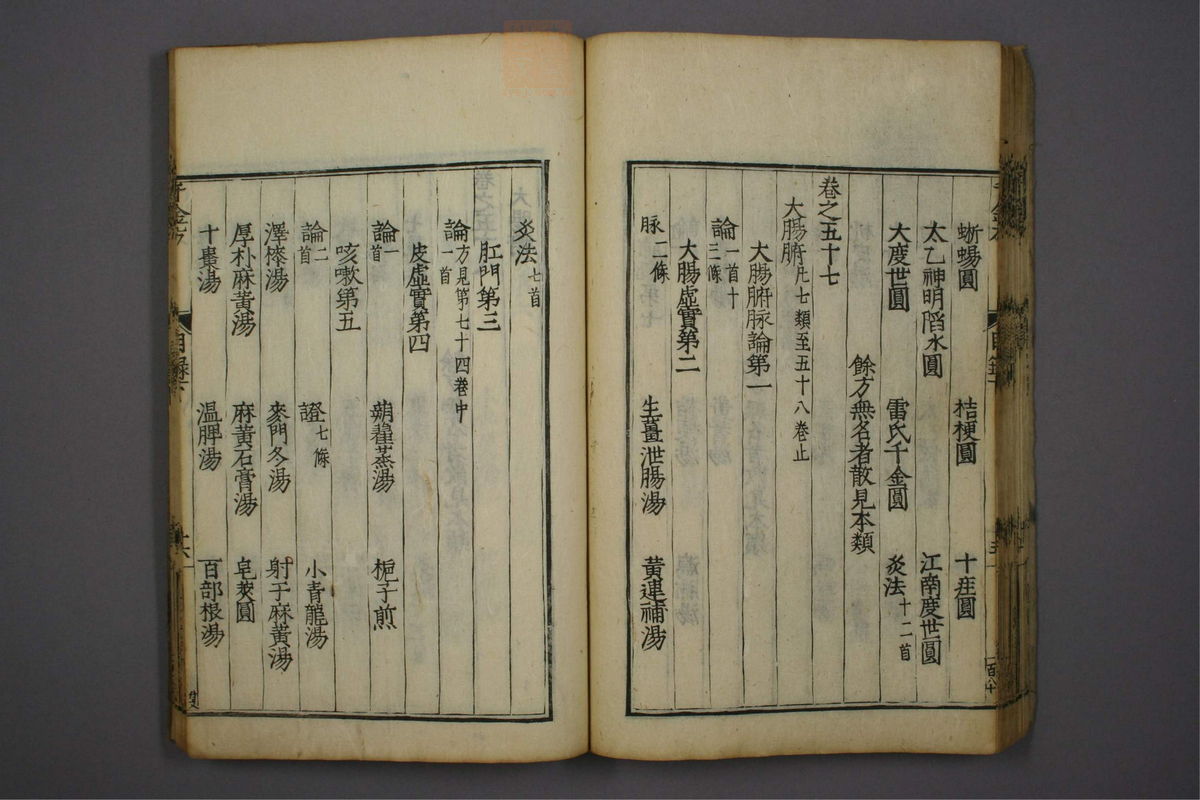 蜥蜴圓 桔梗圓 十疰圓
太乙神明陷氷圓 江南度世圓
大度世圓 雷氏千金圓 灸法十二首
餘方無名者散見本類
卷之五十七
大腸腑凡七類至五十八卷止
大腸腑脉論第一
論一首十三條
大腸虛實第二
脉二條 生薑泄腸湯 黃連補湯
灸法七首
肛門第三
論一首方見第七十四卷中
皮虛實第四
論一首 蒴藋蒸湯 梔子煎
咳嗽第五
論二首 證七條 小青龍湯
澤漆湯 麥門冬湯 射干麻黃湯
厚朴麻黃湯 麻黃石膏湯 皂莢圓
十棗湯 溫脾湯 百部根湯
千金方 目録